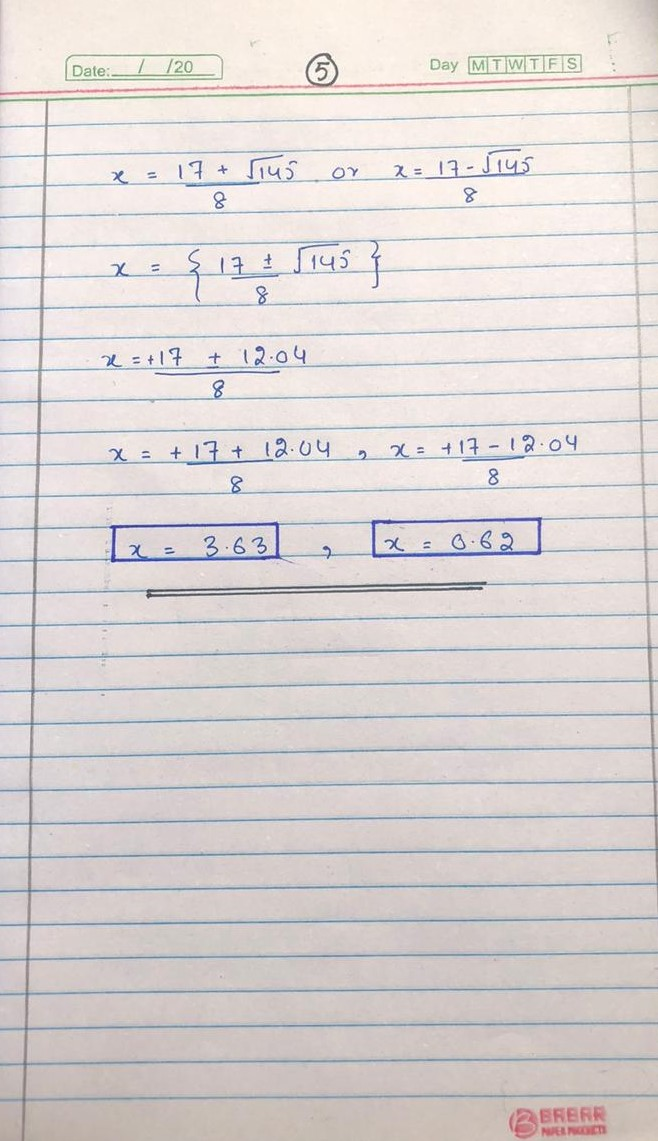 Date: / /20 5 Day M T W T F S
x = 17 + √145 / 8 or x = 17 - √145 / 8
x = { 17 ± √145 / 8 }
x = +17 ± 12.04 / 8
x = +17 + 12.04 / 8 , x = +17 - 12.04 / 8
x = 3.63 , x = 0.62
BRBRR
PAPER PRODUCTS